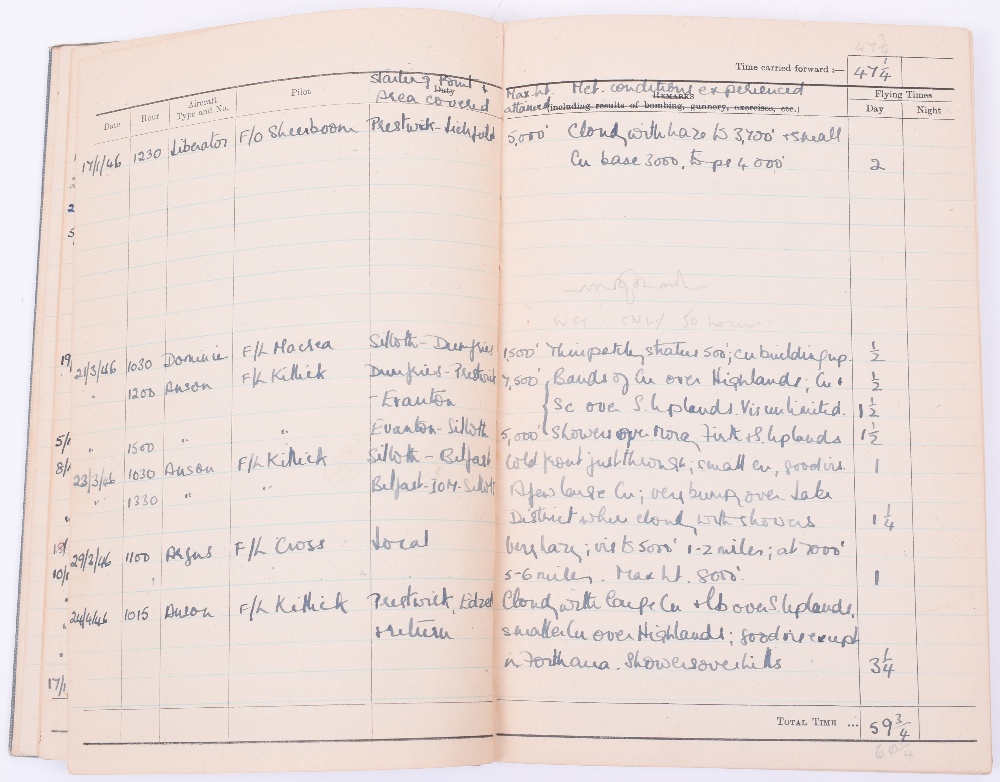 47 3/4
Time carried forward :— 47 1/4
starting Point +
Area covered
Date Hour Aircraft Type and No. Pilot Duty
Max. ht. attained Met. conditions experienced
REMARKS
(including results of bombing, gunnery, exercises, etc.)
Flying Times
Day Night
17/1/46 1230 Liberator F/O Sheerboom Prestwick-Lichfield 5,000' Cloudy with haze to 3,700' + small
Cu base 3000, tops 4000' 2
only 50 hours
21/3/46 1030 Dominie F/L Macrea Silloth-Dumfries 1,500' Thin patchy stratus 500', cu building up. 1/2
" 1200 Anson F/L Killick Dumfries-Prestwick 7,500' Bands of Cu over Highlands; Cu + 1/2
-Evanton Sc over S. Uplands. Vis unlimited. 1 1/2
" 1500 " " Evanton-Silloth 5,000' Showers over Moray Firth + S. Uplands 1 1/2
23/3/46 1030 Anson F/L Killick Silloth-Belfast Cold front just through; small cu, good vis. 1
" 1330 " " Belfast-IOM-Silloth A few large Cu; very bumpy over Lake
District where cloudy with showers 1 1/4
29/3/46 1100 Argus F/L Cross Local Very hazy; vis to 5000' 1-2 miles; at 7000'
5-6 miles. Max ht. 8000'. 1
24/4/46 1015 Anson F/L Killick Prestwick, Edzell Cloudy with large Cu + Cb over S. Uplands,
+ return smaller Cu over Highlands; good vis except
in Forth area. Showers over hills 3 1/4
TOTAL TIME ... 59 3/4
19/
5/1
8/1
10/1
17/1